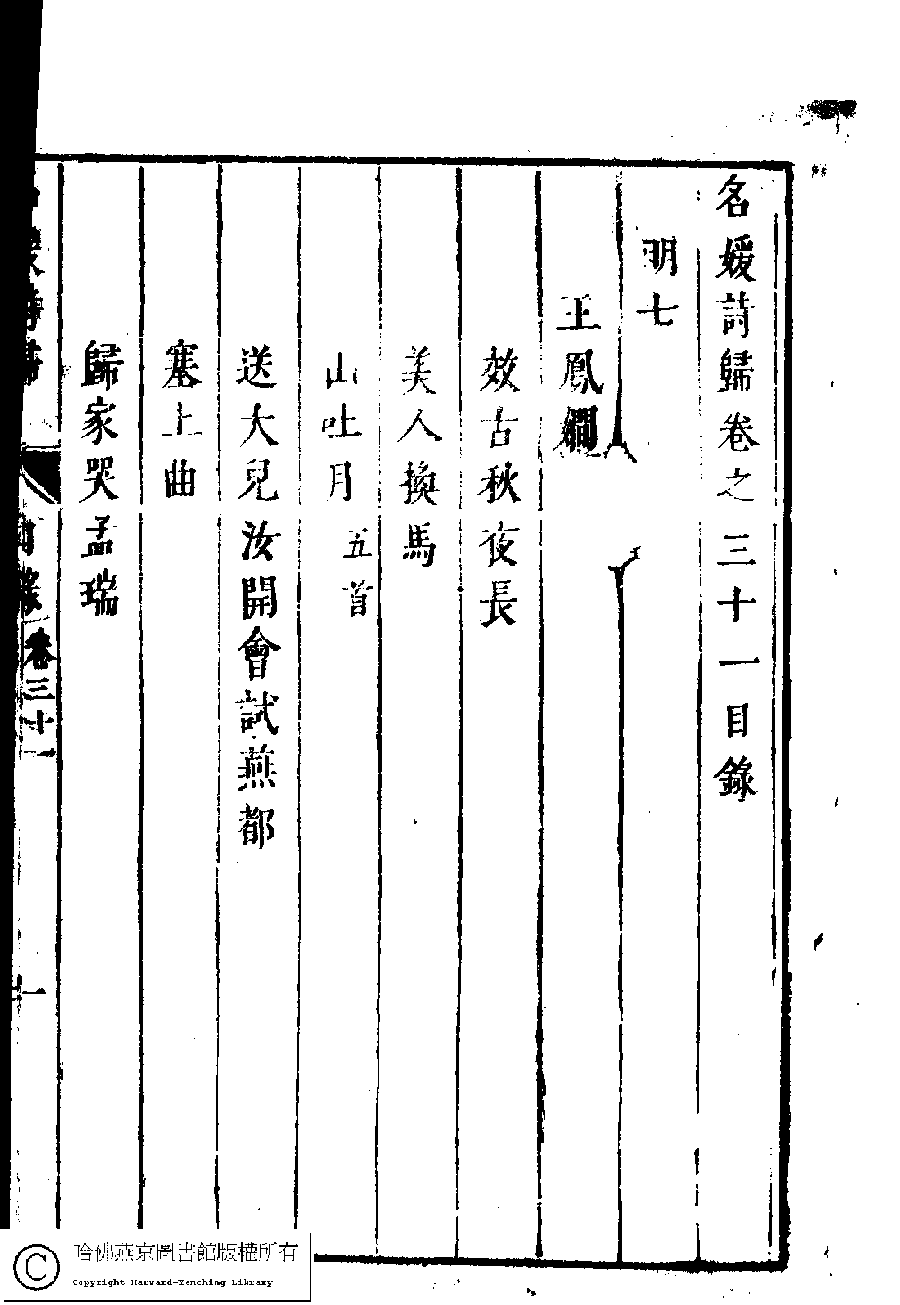 名媛詩歸卷之三十一目錄
明七
王鳳嫺
效古秋夜長
美人換馬
山吐月 五首
送大兒汝開會試燕都
塞上曲
歸家哭孟瑞
卷三十一
一
哈佛燕京圖書館版權所有
Copyright Harvard-Yenching Library